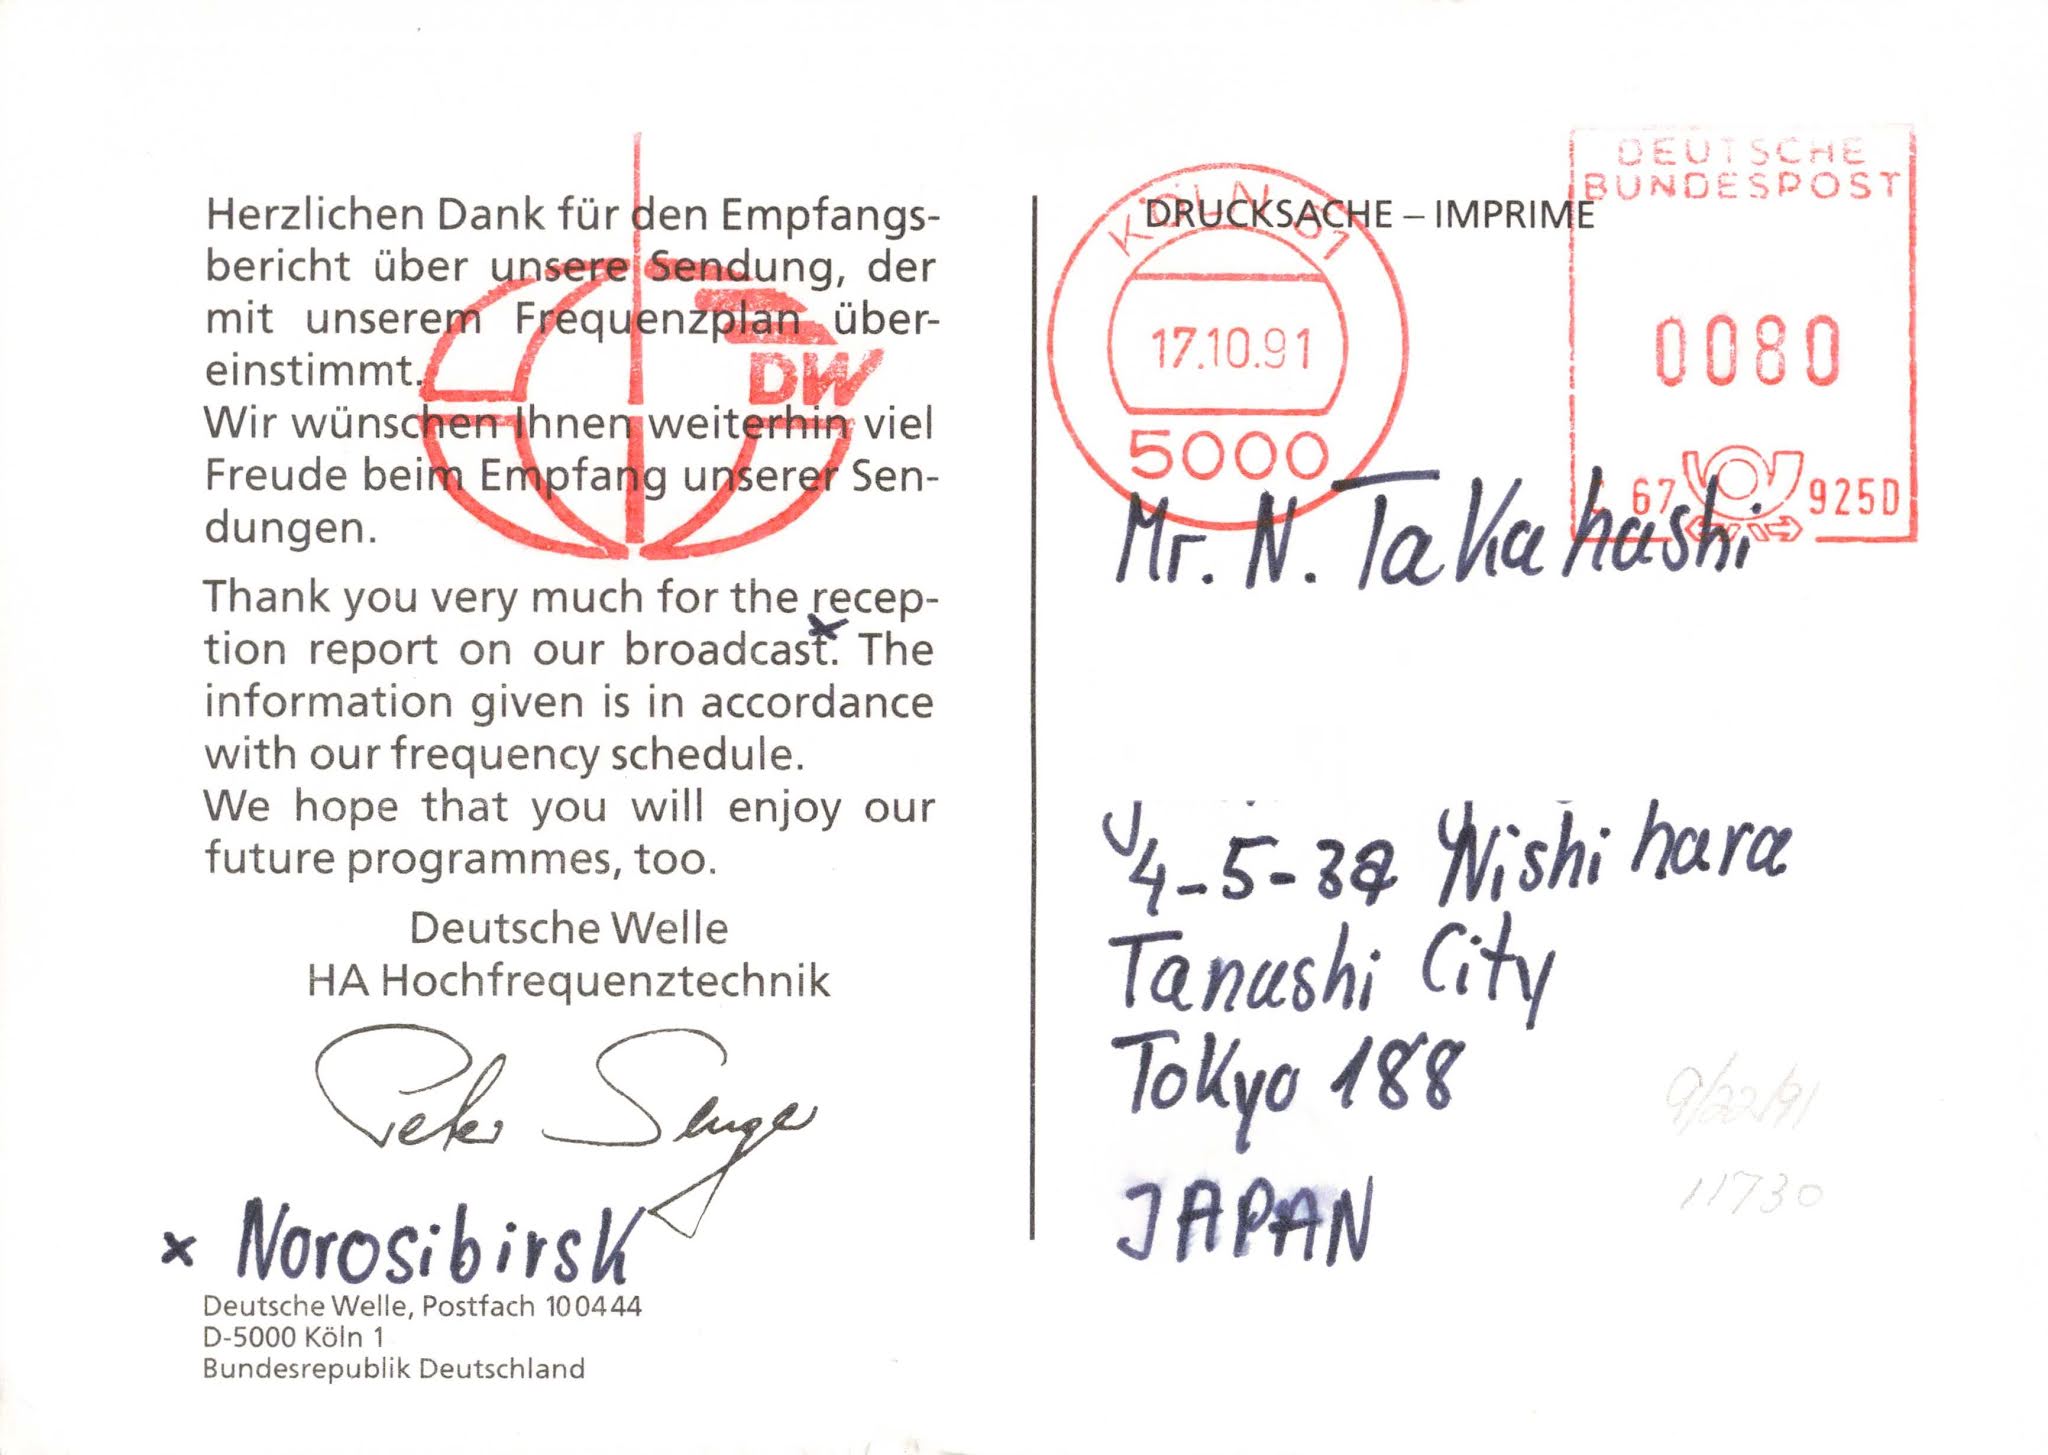 Herzlichen Dank für den Empfangs-
bericht über unsere Sendung, der
mit unserem Frequenzplan über-
einstimmt.
Wir wünschen Ihnen weiterhin viel
Freude beim Empfang unserer Sen-
dungen.
Thank you very much for the recep-
tion report on our broadcast. The
information given is in accordance
with our frequency schedule.
We hope that you will enjoy our
future programmes, too.
Deutsche Welle
HA Hochfrequenztechnik
Peter Senger
x Norosibirsk
Deutsche Welle, Postfach 100444
D-5000 Köln 1
Bundesrepublik Deutschland
DW
DRUCKSACHE – IMPRIME
KÖLN 51
17.10.91
5000
DEUTSCHE
BUNDESPOST
0080
67 925D
Mr. N. Takahashi
4-5-Nishihara
Tanashi City
Tokyo 188
JAPAN
9/22/91
11730